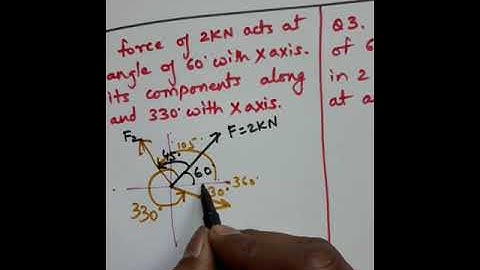 force of 2KN acts at
angle of 60° with X axis.
its components along
and 330° with X axis.
F2
45°
105°
F=2KN
60
330°
30°
360°
Q3.
of 6
in 2
at a